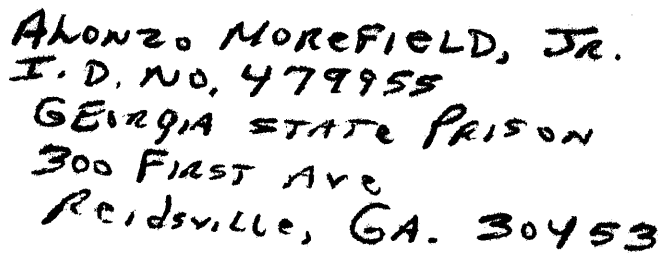 Alonzo Morefield, Jr.
I. D. No. 479955
Georgia State Prison
300 First Ave
Reidsville, GA. 30453